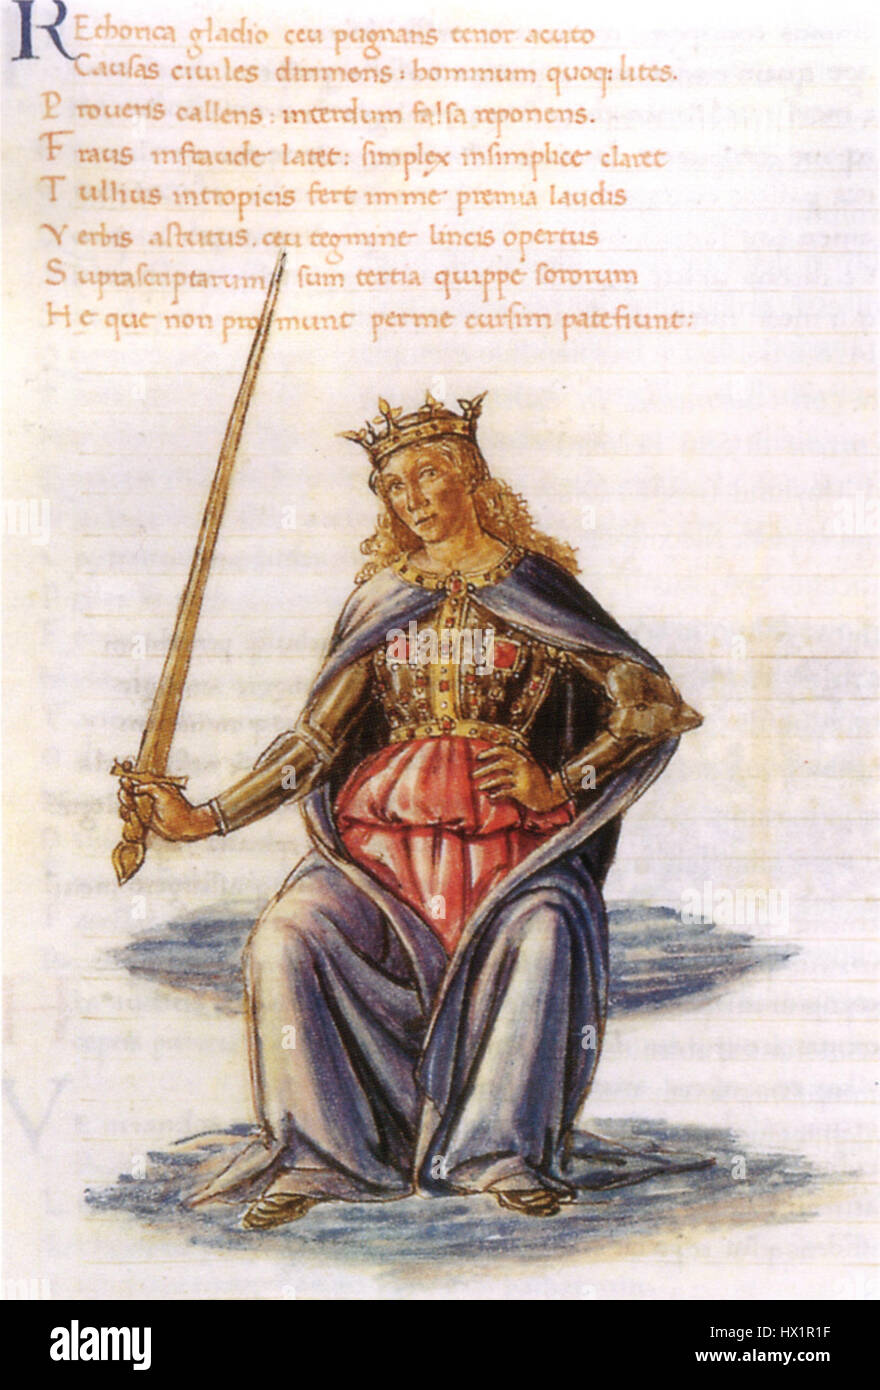 REthorica gladio ceu pugnans tenor acuto
Causas ciuiles dirimens: hominum quoq: lites.
Proueris callens: interdum falsa reponens.
Fraus infraude latet: simplex insimplice claret
Tullius intropicis fert in me premia laudis
Verbis astutus. ceu tegmine lincis opertus
Suprascriptarum sum tertia quippe sororum
He que non promunt per me cursim patefiunt
alamy
alamy stock photo
HX1R1F
www.alamy.com